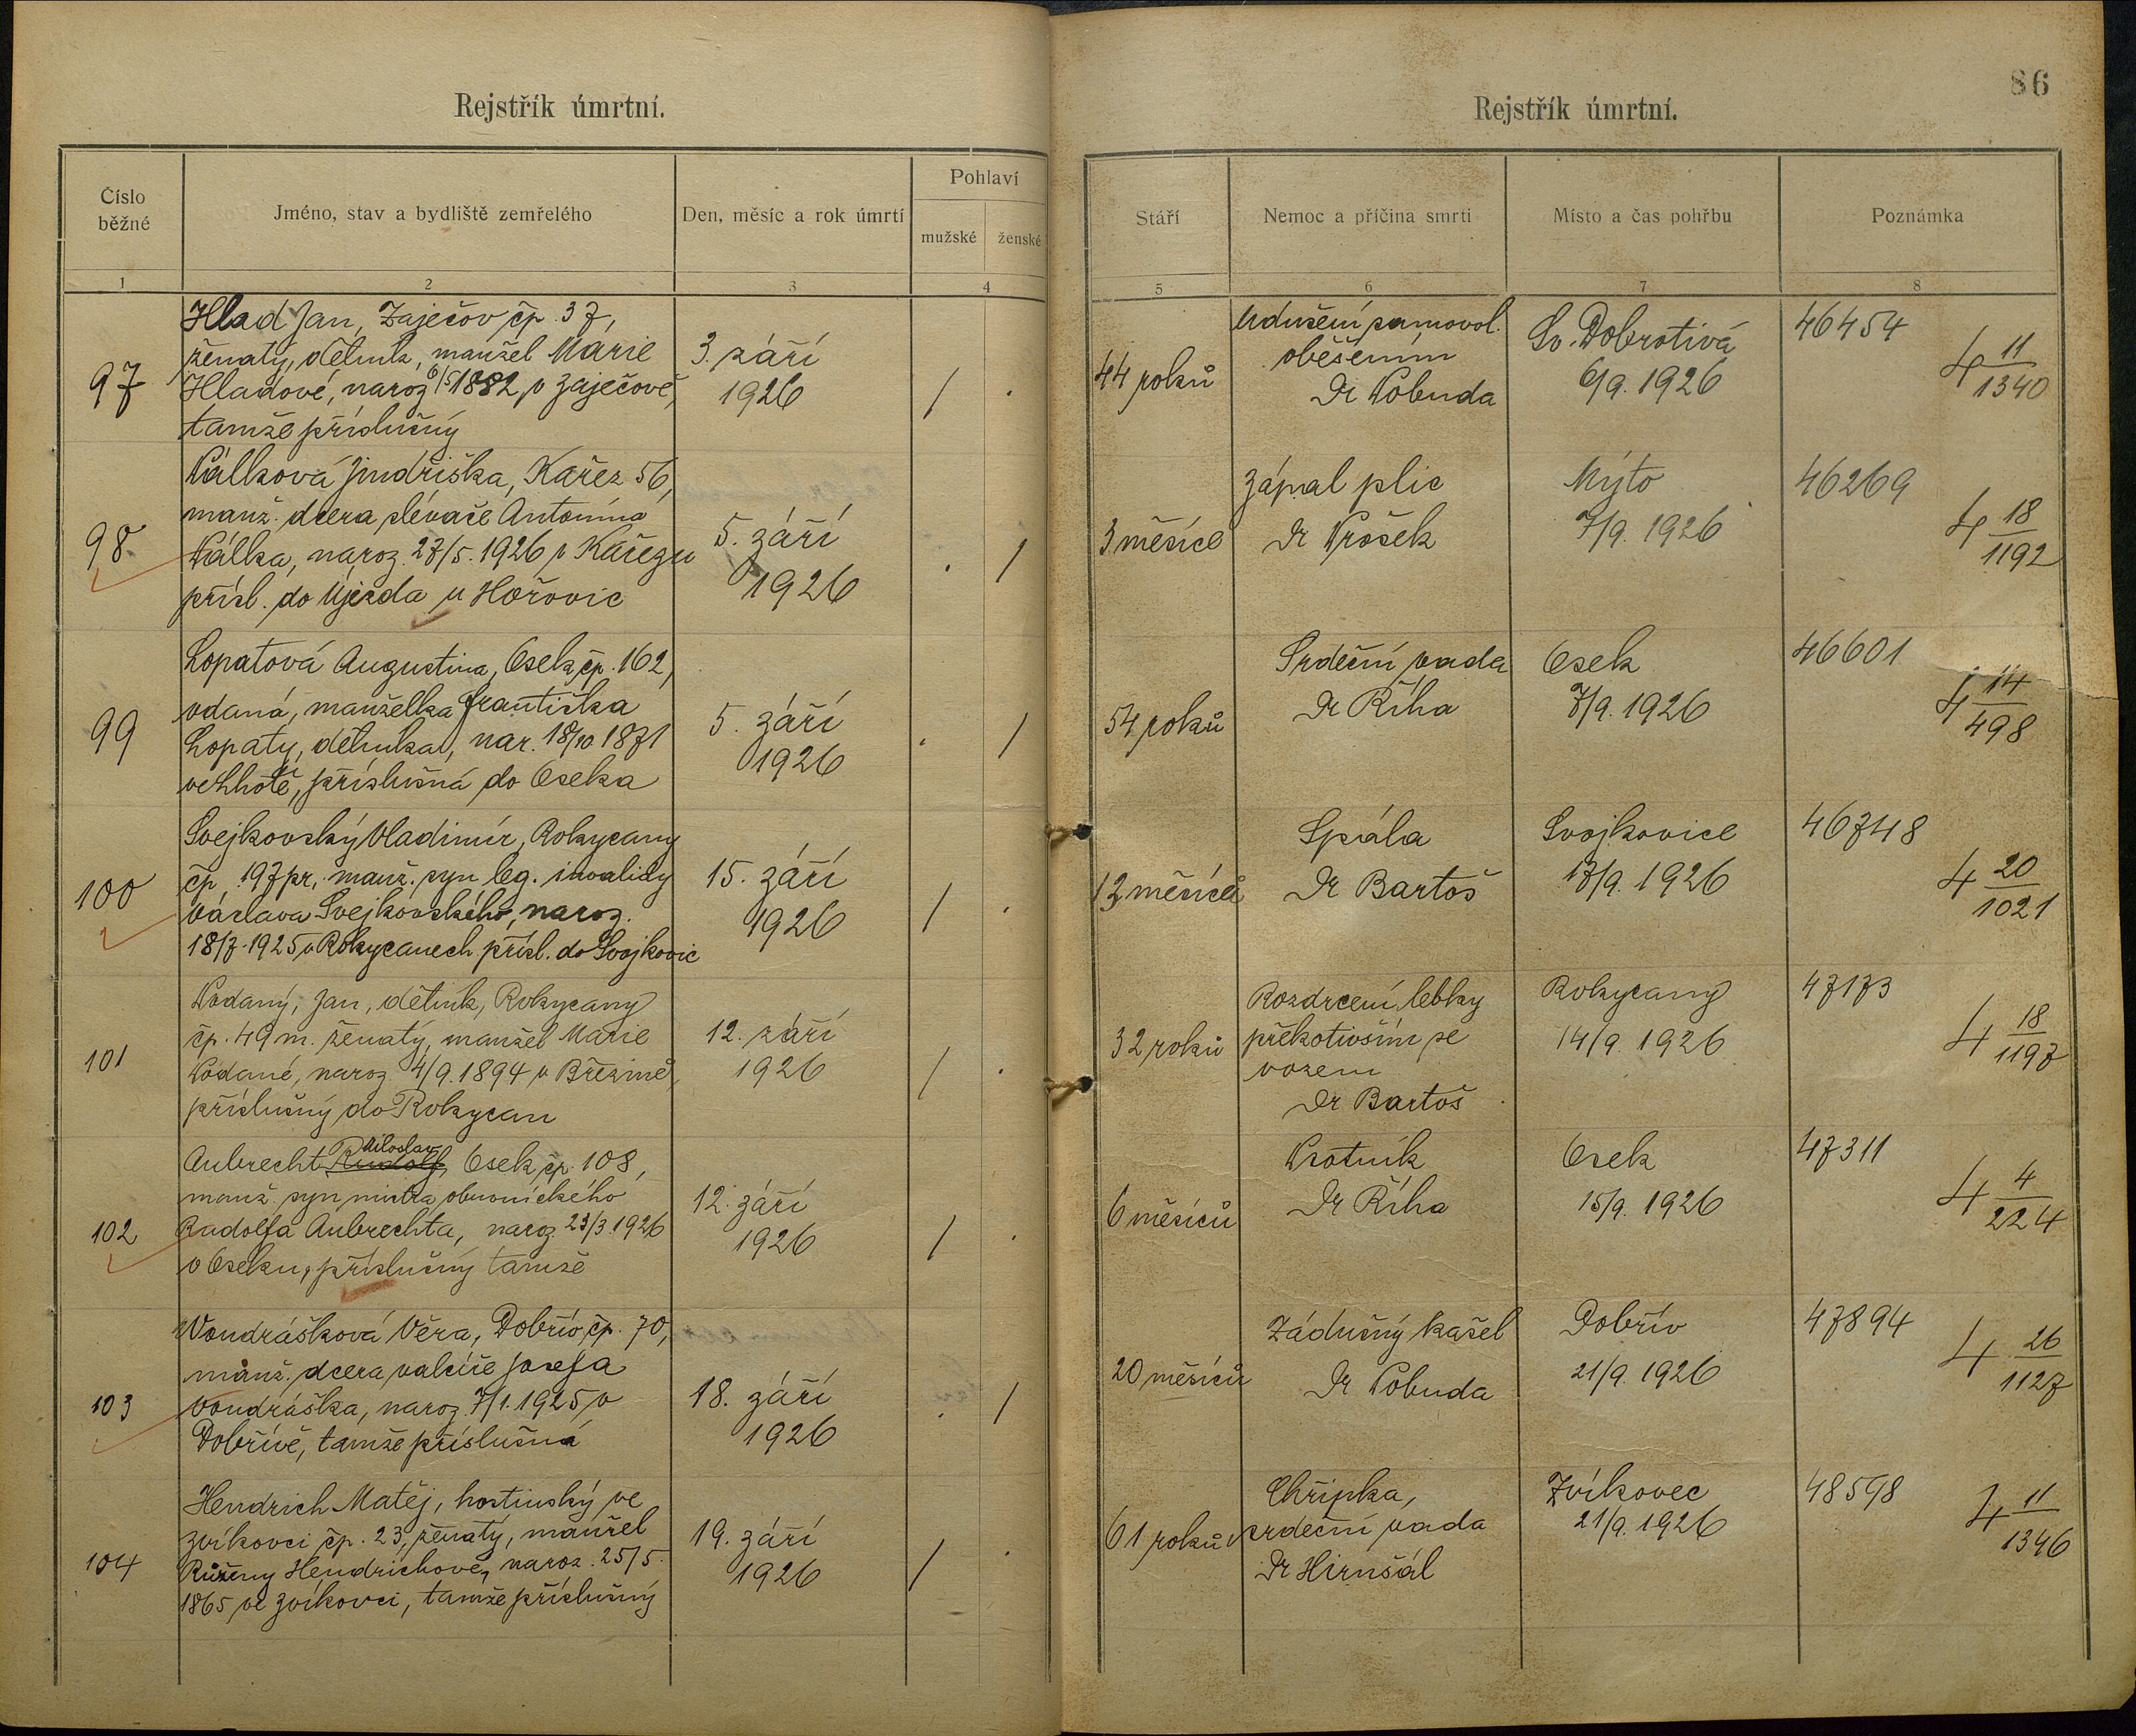 Rejstřík úmrtní.
Číslo běžné
Jméno, stav a bydliště zemřelého
Den, měsíc a rok úmrtí
Pohlaví
mužské
ženské
1
2
3
4
97
Hlad Jan, Zaječov čp. 37,
ženatý, dělník, manžel Marie
Hladové, naroz 6/5 1882 v Zaječově,
tamže příslušný
3. září
1926
/ .
98
Válková Jindřiška, Kařez 56,
manž. dcera slévače Antonína
Válka, naroz. 27/5. 1926 v Kařezu
přísl. do Újezda u Hořovic
5. září
1926
. /
99
Lopatová Augustina, Osek čp. 162,
vdaná, manželka Františka
Lopaty, dělníka, nar. 18/10 1871
ve Lhotě, příslušná do Oseka
5. září
1926
. /
100
Svejkovský Vladimír, Rokycany
čp. 197 pr., manž. syn leg. invalidy
Václava Svejkovského, naroz.
18/7. 1925 v Rokycanech přísl. do Svojkovic
15. září
1926
/ .
101
Vodaný, Jan, dělník, Rokycany
čp. 49 m. ženatý, manžel Marie
Vodané, naroz. 4/9. 1894 v Březině,
příslušný do Rokycan
12. září
1926
/ .
102
Miloslav
Aubrecht Rudolf, Osek čp. 108,
manž. syn mistra obuvnického
Rudolfa Aubrechta, naroz. 23/3. 1926
v Oseku, příslušný tamže
12. září
1926
/ .
103
Vondrášková Věra, Dobřív čp. 70,
manž. dcera valcíře Josefa
Vondráška, naroz. 7/1. 1925 v
Dobřívě, tamže příslušná
18. září
1926
. /
104
Hendrich Matěj, hostinský ve
Zvíkovci čp. 23, ženatý, manžel
Růženy Hendrichové, naroz. 25/5.
1865 ve Zvíkovci, tamže příslušný
19. září
1926
/ .
86
Rejstřík úmrtní.
Stáří
Nemoc a příčina smrti
Místo a čas pohřbu
Poznámka
5
6
7
8
44 roků
Udušení samovol.
oběšením
Dr Vobuda
Sv. Dobrotivá
6/9. 1926
46454
4 11/1340
3 měsíce
Zápal plic
Dr Vrošek
Mýto
7/9. 1926
46269
4 18/1192
54 roků
Srdeční vada
Dr Říha
Osek
7/9. 1926
46601
4 14/498
12 měsíců
Spála
Dr Bartoš
Svojkovice
17/9. 1926
46748
4 20/1021
32 roků
Rozdrcení lebky
překotivším se
vozem
Dr Bartoš
Rokycany
14/9. 1926
47173
4 18/1197
6 měsíců
Psotník
Dr Říha
Osek
15/9. 1926
47311
4 4/224
20 měsíců
Zádušný kašel
Dr Vobuda
Dobřív
21/9. 1926
47894
4 26/1127
61 roků
Chřipka,
srdeční vada
Dr Hirnšál
Zvíkovec
21/9. 1926
48598
4 11/1346